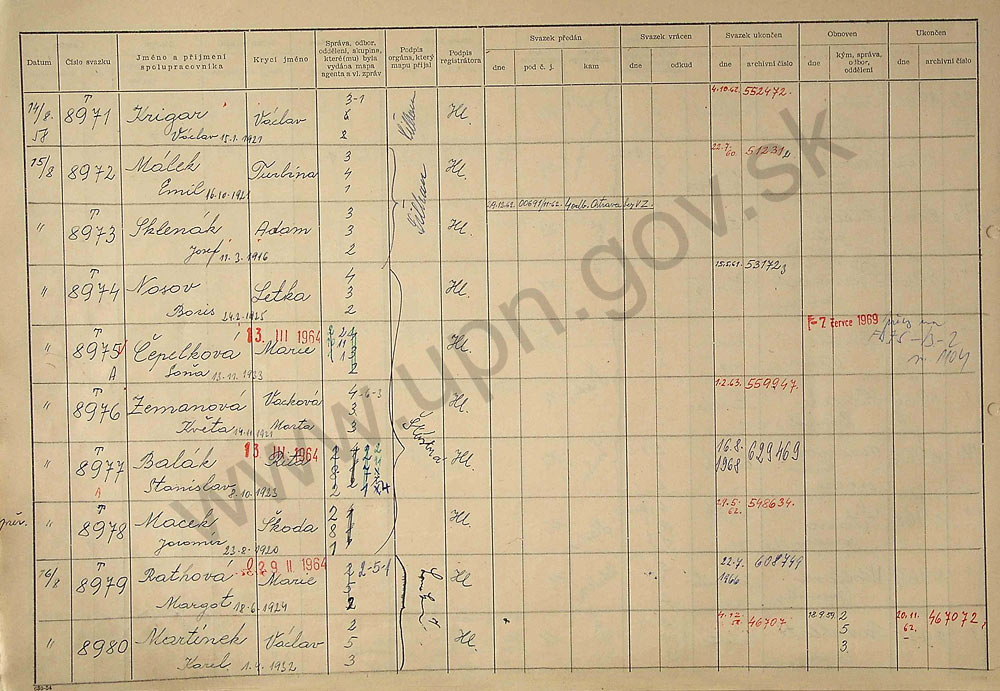 Datum
Číslo svazku
Jméno a příjmení spolupracovníka
Krycí jméno
Správa, odbor, oddělení, skupina, které(mu) byla vydána mapa agenta a vl. zpráv
Podpis orgána, který mapu přijal
Podpis registrátora
Svazek předán
dne
pod č. j.
kam
Svazek vrácen
dne
odkud
Svazek ukončen
dne
archivní číslo
Obnoven
dne
kým, správa, odbor, oddělení
Ukončen
dne
archivní číslo
14/8. 58 T 8971 Krigar Václav 3-1 Hl. 4.10.62. 552472.
Václav 15.1.1921 2
15/8 T 8972 Málek Turbina 3 4 1 Hl. 22.7.60. 51231
Emil 16.10.1921
24.12.62. 00691/11-62. Ostrava
" T 8973 Sklenák Adam 3 3 2 Hl.
Josef 11.3.1916
" T 8974 Nosov Letka 4 3 2 Hl. 53172
Boris 24.2.1925
" T 8975 Čepelková 13. III 1964 Marie Hl. -7. července 1969
A Soňa 13.11.1933 2
" T 8976 Zemanová Vacková 4 3 3 Hl. 1.2.63. 559947
Květa 14.11.1921 Marta
" T 8977 Balák 13. III 1964 Rita Hl. 16.8. 1968 629469
A Stanislav 8.10.1923
" T 8978 Macek Škoda 2 8 1 Hl. 29.5. 62. 548634.
Jaromír 23.8.1920
16/8 T 8979 Rathová 29 II 1964 Marie 2-5-1 Hl 22.4. 1966 608749
Margot 18.6.1924 2
" T 8980 Martínek Václav 2 5 3 Hl. 46707 18.9.59. 2 5 3. 20.11. 62. 467072
Karel 1.4.1932
www.upn.gov.sk